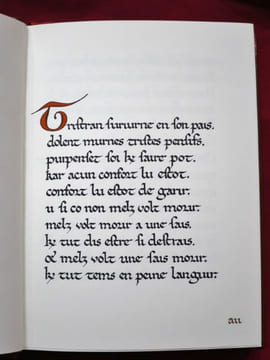 Tristran sururne en son pais.
dolent murnes tristes pensifs.
purpenset soi ky faire pot.
kar acun confort lu estot.
confort lu estot de garir.
u si co non melz volt mourir.
melz volt mourir a une fais.
ky tut dis estre si destrais.
& melz volt une fais mourir.
ky tut tems en peine languir.